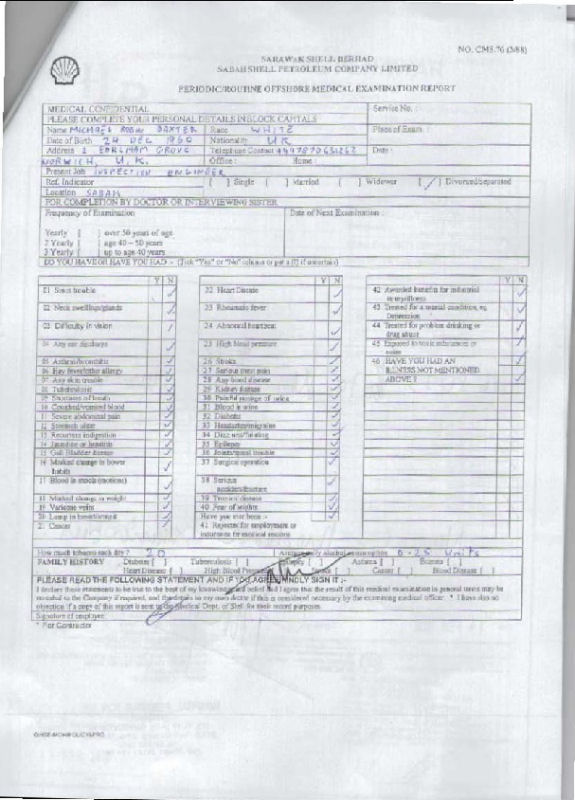 NO. CMS.76 (3/88)
SARAWAK SHELL BERHAD
SABAH SHELL PETROLEUM COMPANY LIMITED
PERIODIC/ROUTINE OFFSHORE MEDICAL EXAMINATION REPORT
MEDICAL CONFIDENTIAL Service No. :
PLEASE COMPLETE YOUR PERSONAL DETAILS IN BLOCK CAPITALS
Name MICHAEL ROBIN BAXTER Race WHITE Place of Exam :
Date of Birth 24 DEC 1960 Nationality UK
Address 1 EARLHAM GROVE Telephone Contact Date :
NORWICH, U.K. Office : Home
Present Job INSPECTION ENGINEER
Ref. Indicator [ ] Single [ ] Married [ ] Widower [/] Divorced/Separated
Location SABAH
FOR COMPLETION BY DOCTOR OR INTERVIEWING SISTER
Frequency of Examination Date of Next Examination :
Yearly [ ] over 50 years of age
2 Yearly [ ] age 40 – 50 years
3 Yearly [ ] up to age 40 years
DO YOU HAVE OR HAVE YOU HAD :- (Tick "Yes" or "No" column or put a (?) if uncertain)
Y N Y N Y N
01 Sinus trouble 22 Heart Disease 42 Awarded benefits for industrial
02 Neck swellings/glands 23 Rheumatic fever 43 Treated for a mental condition, eg
Depression
03 Difficulty in vision 24 Abnormal heartbeat 44 Treated for problem drinking or
drug abuse
04 Any ear discharge 25 High blood pressure 45 Exposed to toxic substances or
noise
05 Asthma/bronchitis 26 Stroke 46 HAVE YOU HAD AN
06 Hay fever/other allergy 27 Serious chest pain ILLNESS NOT MENTIONED
07 Any skin trouble 28 Any blood disease ABOVE ?
08 Tuberculosis 29 Kidney disease
09 Shortness of breath 30 Painful passage of urine
10 Coughed/vomited blood 31 Blood in urine
11 Severe abdominal pain 32 Diabetes
12 Stomach ulcer 33 Headaches/migraine
13 Recurrent indigestion 34 Dizziness/fainting
14 Jaundice or hepatitis 35 Epilepsy
15 Gall Bladder disease 36 Joints/spinal trouble
16 Marked change in bowel 37 Surgical operation
habits
17 Blood in stools (motions) 38 Serious
accident/fracture
18 Marked change in weight 39 Tropical disease
19 Varicose veins 40 Fear of heights
20 Lump in breast/armpit Have you ever been :-
2. Cancer 41 Rejected for employment or
insurance for medical reasons
How much tobacco each day ? 20 Average daily alcohol consumption 0-25 Units
FAMILY HISTORY Diabetes [ ] Tuberculosis [ ] Epilepsy [ ] Asthma [ ] Eczema [ ]
Heart Disease [ ] High Blood Pressure Stroke [ ] Cancer [ ] Blood Disease [ ]
PLEASE READ THE FOLLOWING STATEMENT AND IF YOU AGREE KINDLY SIGN IT :-
I declare these statements to be true to the best of my knowledge and belief and I agree that the result of this medical examination in general terms may be
revealed to the Company if required, and the details to my own doctor if this is considered necessary by the examining medical officer. * I have also no
objection if a copy of this report is sent to the Medical Dept. of Shell for their record purposes.
Signature of employee:
* For Contractor